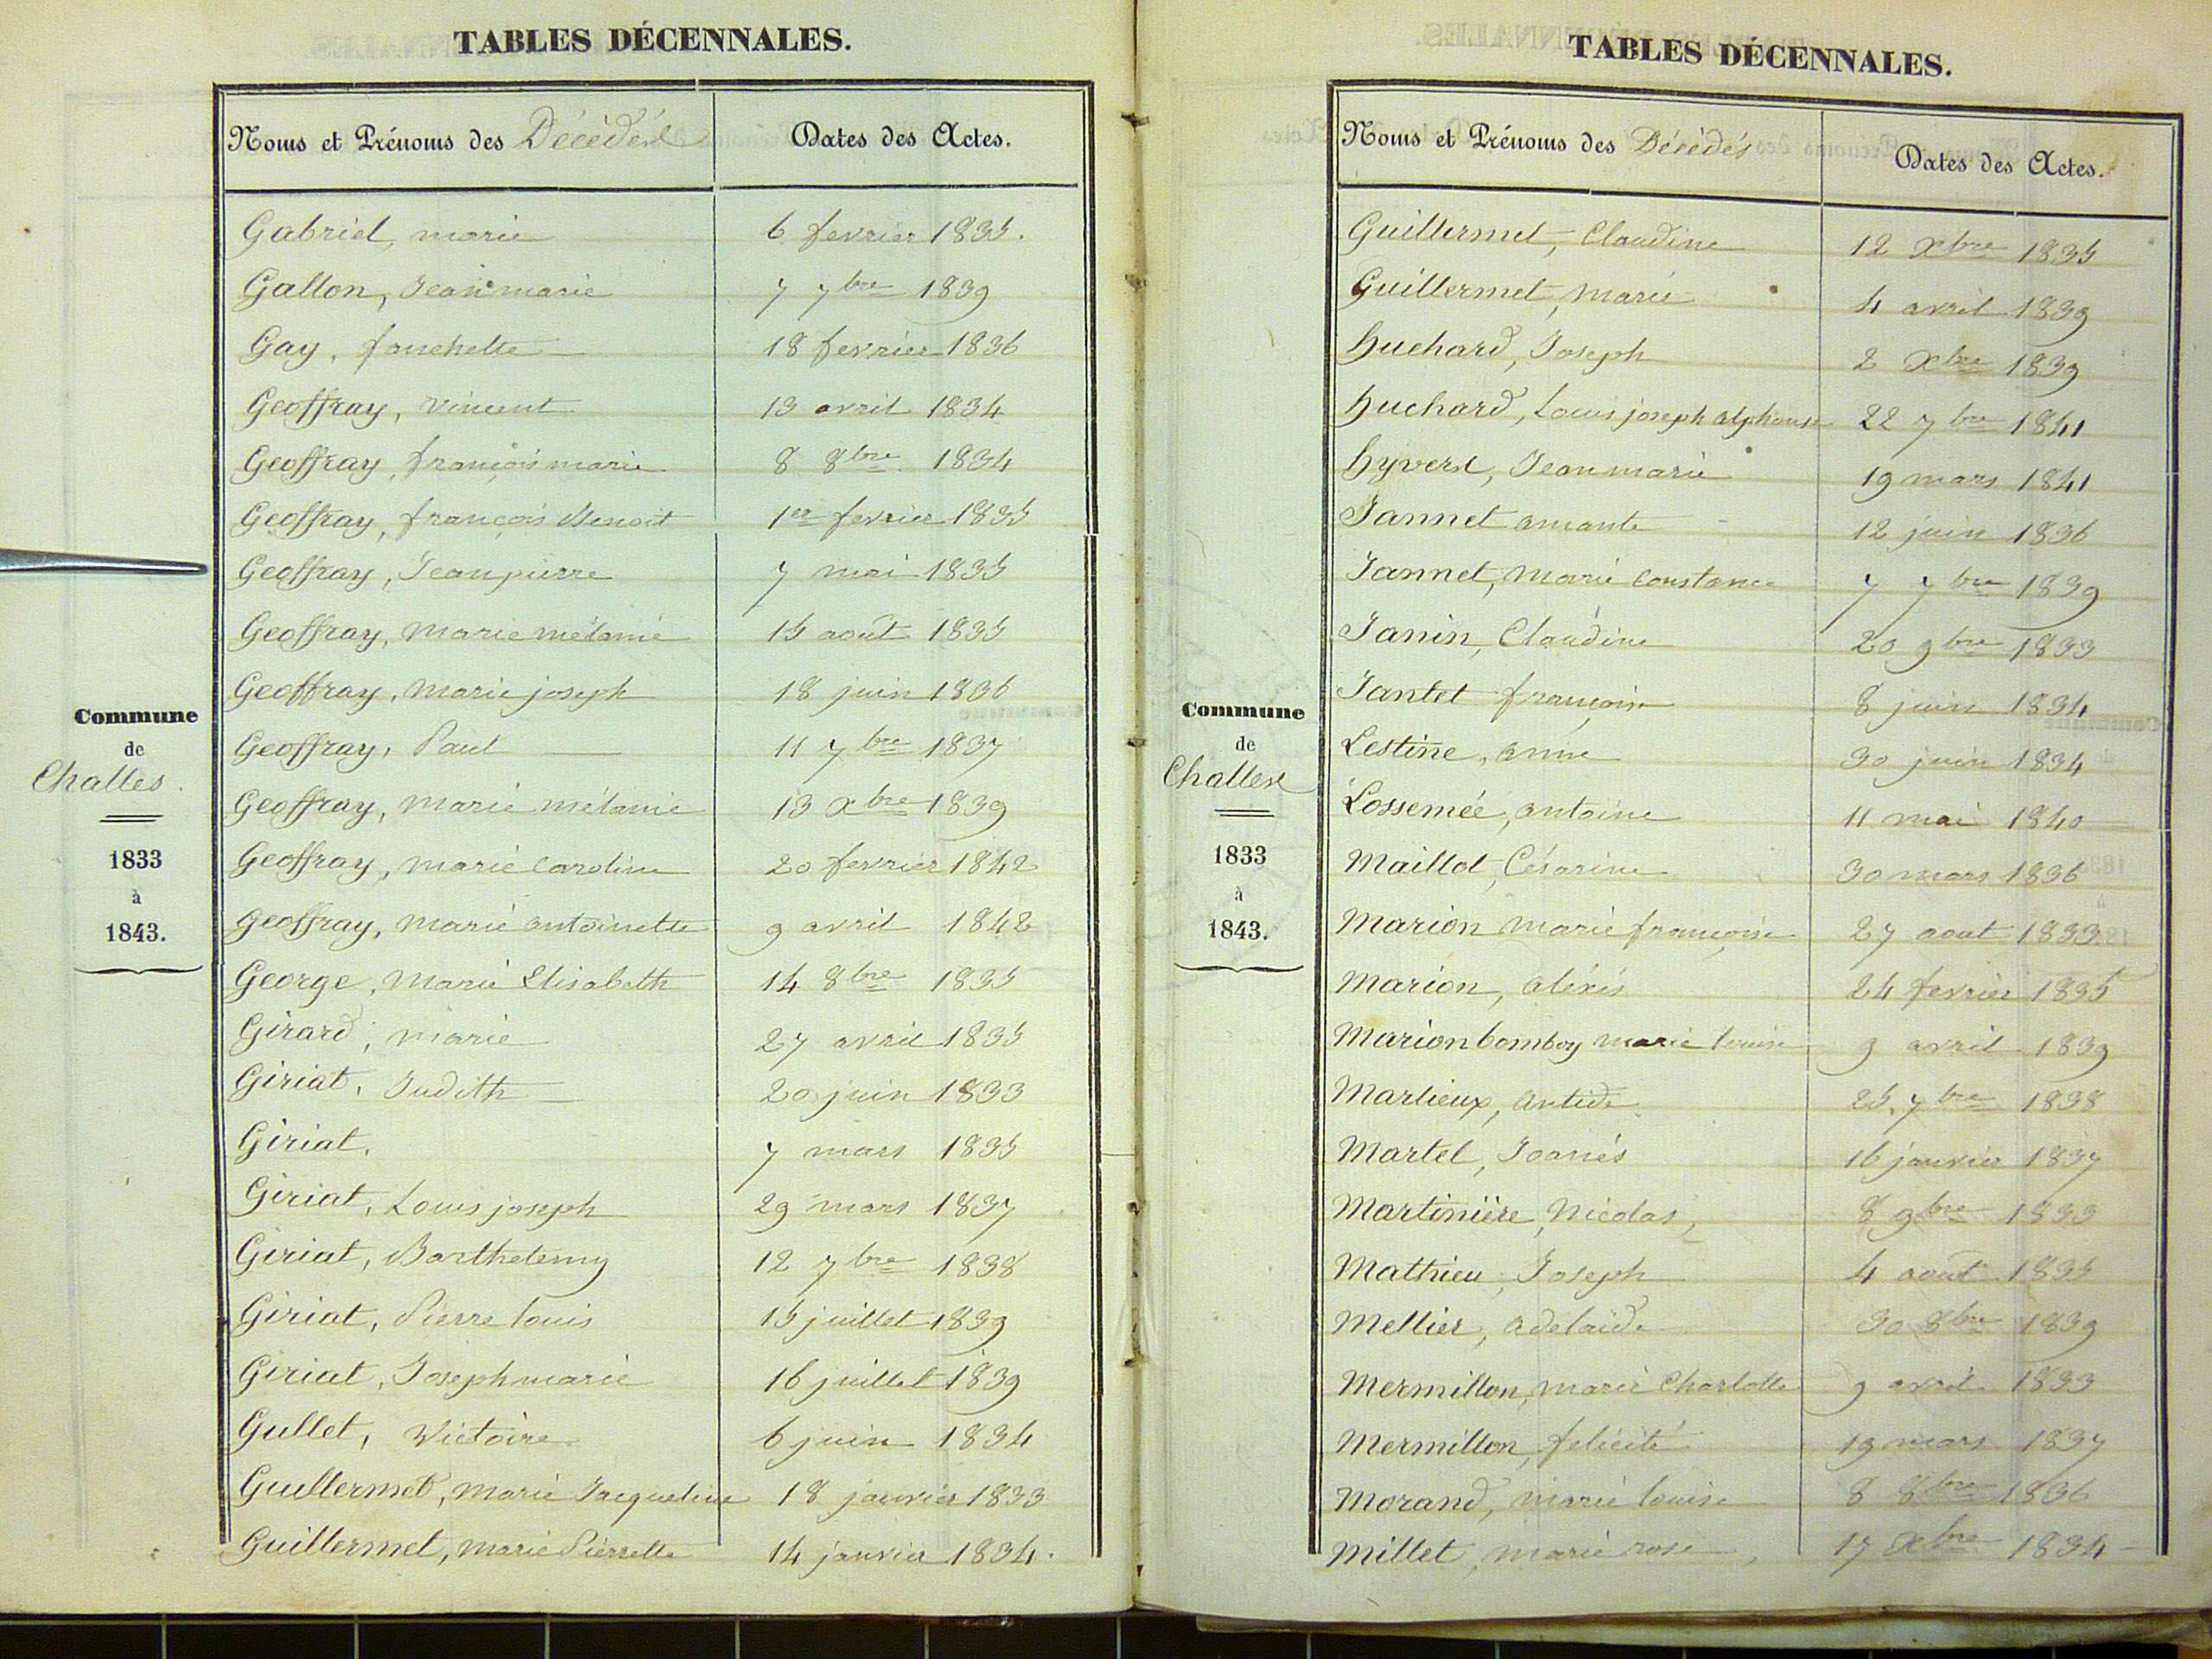 TABLES DÉCENNALES.
Noms et Prénoms des Décédés Dates des Actes.
Gabriel, marie 6 fevrier 1835.
Gallon, Jean marie 7 7bre 1839
Gay, fanchette 18 fevrier 1836
Geoffray, vincent 13 avril 1834
Geoffray, françois marie 8 8bre 1834
Geoffray, françois Benoit 1er fevrier 1835
Geoffray, Jean pierre 7 mai 1835
Geoffray, marie mélanie 15 août 1835
Geoffray, marie joseph 18 juin 1836
Geoffray, Paul 11 7bre 1837
Geoffray, marie mélanie 13 xbre 1839
Geoffray, marie caroline 20 fevrier 1842
Geoffray, marie antoinette 9 avril 1842
George, marie Elisabeth 14 8bre 1835
Girard, marie 27 avril 1835
Giriat, Judith 20 juin 1833
Giriat, 7 mars 1835
Giriat, Louis joseph 29 mars 1837
Giriat, Barthelemy 12 7bre 1838
Giriat, Pierre louis 15 juillet 1839
Giriat, Joseph marie 16 juillet 1839
Gullet, Victoire 6 juin 1834
Guillermet, marie Jacqueline 18 janvier 1833
Guillermet, marie Pierrette 14 janvier 1834.
Commune
de
Challes.
1833
à
1843.
TABLES DÉCENNALES.
Noms et Prénoms des Décédés Dates des Actes.
Guillermet, Claudine 12 xbre 1835
Guillermet, marie 4 avril 1839
huchard, Joseph 2 xbre 1839
huchard, Louis joseph alphonse 22 7bre 1841
hyvert, Jean marie 19 mars 1841
Jannet amante 12 juin 1836
Jannet, marie constance 7 7bre 1839
Janin, Claudine 20 9bre 1833
Jantet françoise 8 juin 1834
Lestine, anne 30 juin 1834
Lossemée, antoine 11 mai 1840
Maillot, Césarine 30 mars 1836
Marion marie françoise 27 aout 1833
Marion, aléxis 24 fevrier 1835
Marion bomboy marie louise 9 avril 1839
Marlieux, antide 25 7bre 1838
Martel, Joanés 16 janvier 1837
Martinière, Nicolas, 8 9bre 1833
Mathieu, Joseph 4 août 1835
Mellier, adelaïde 30 8bre 1839
Mermillon, marie Charlotte 9 avril 1833
Mermillon, felicité 19 mars 1837
Morand, marie louise 8 8bre 1836
Millet, marie rose 17 xbre 1834
Commune
de
Challes
1833
à
1843.